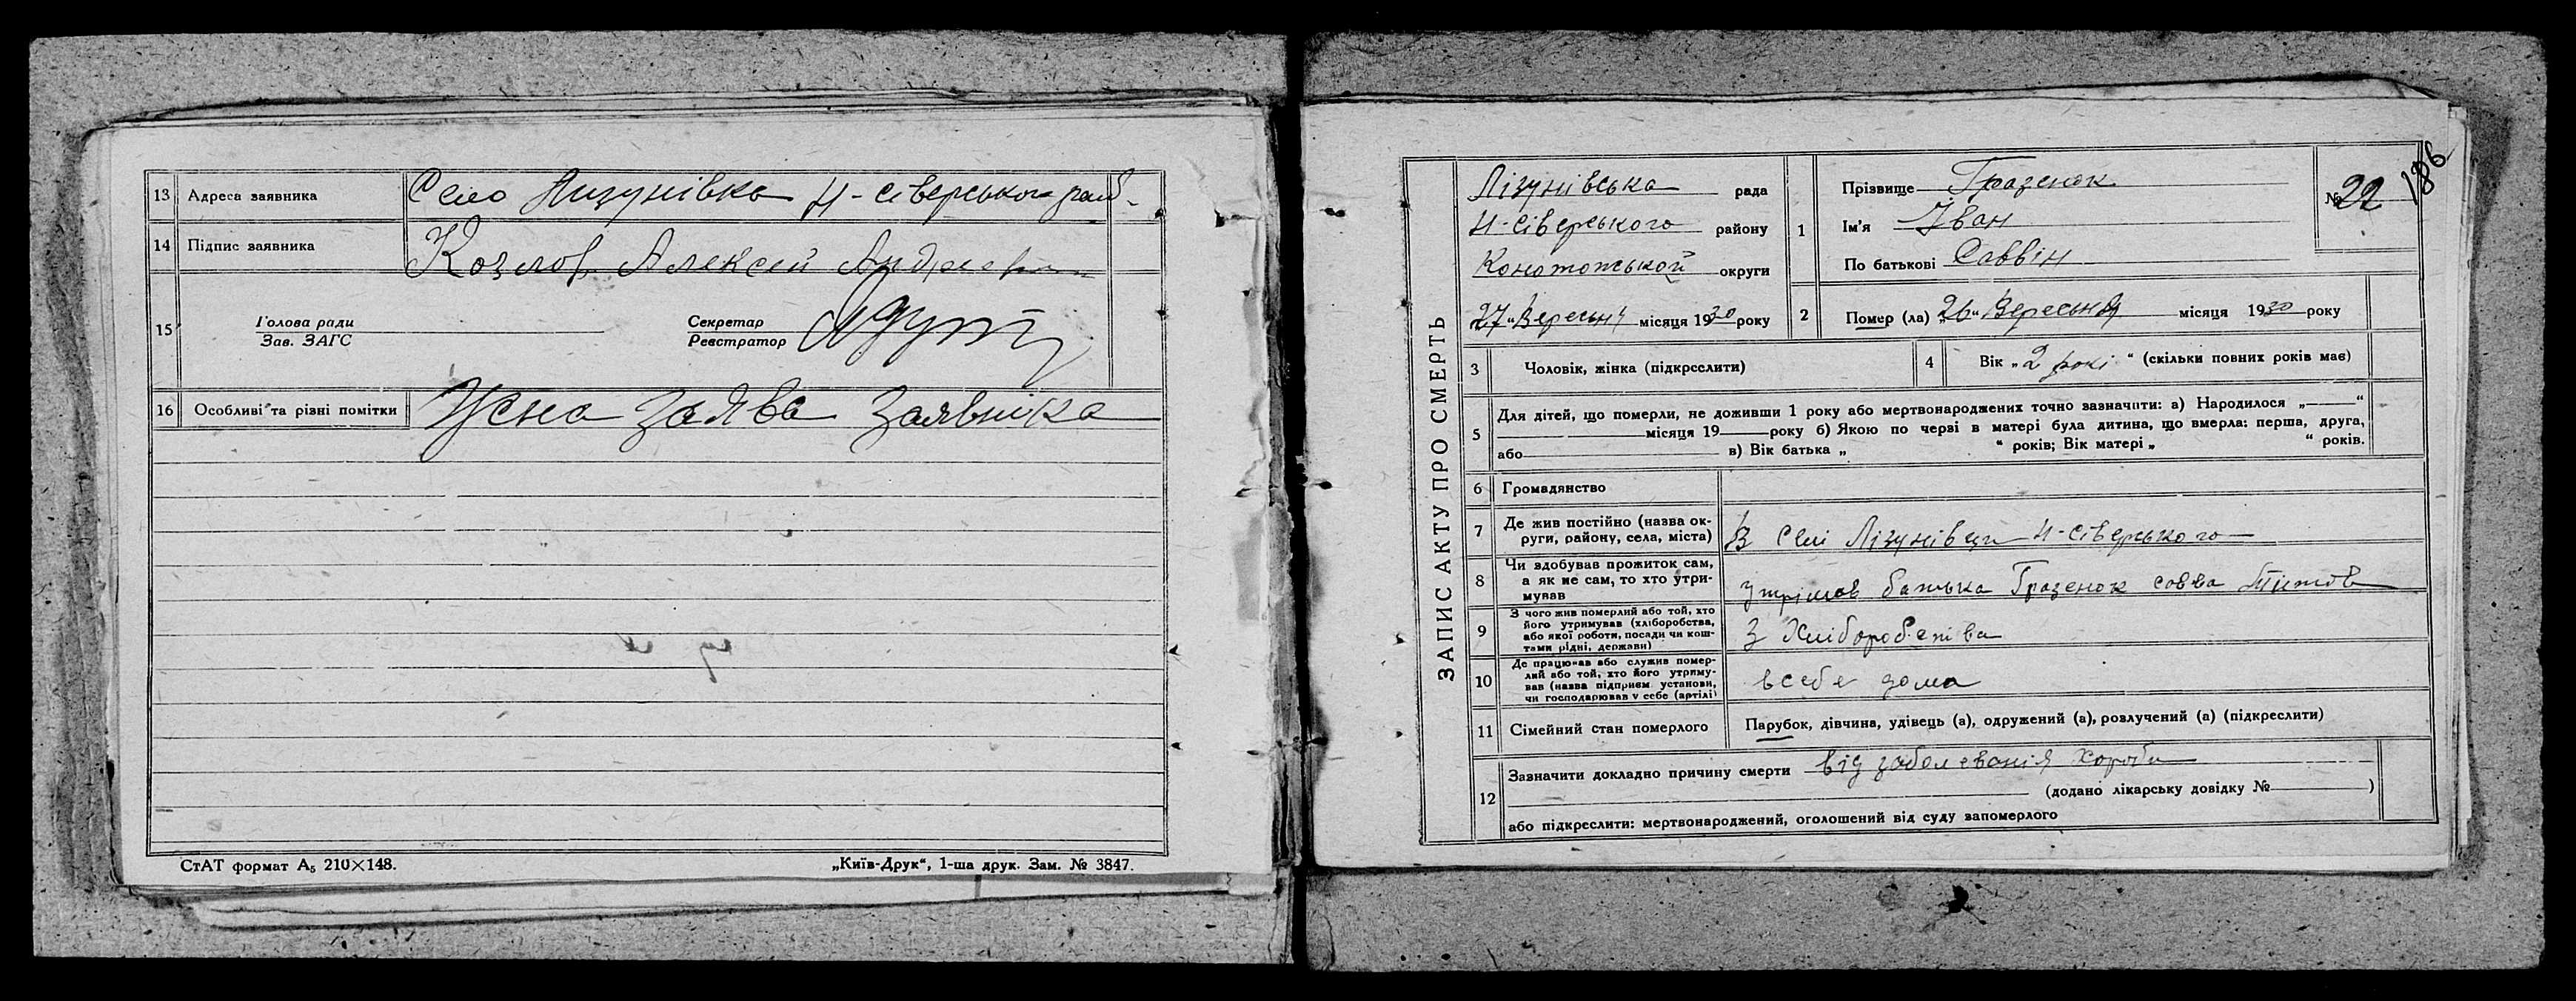 13 Адреса заявника Село Лизунівка Н-Сіверського
14 Підпис заявника Козлов Алексей
15 Голова ради
Зав. ЗАГС
Секретар
Реєстратор
16 Особливі та різні помітки Усна заява заявника
СтАТ формат А₅ 210×148.
„Київ-Друк“, 1-ша друк. Зам. № 3847.
ЗАПИС АКТУ ПРО СМЕРТЬ
Лізунівська рада
Н-Сіверського району
Конотопськой округи
„27“ Вересня місяця 1930 року
1 Прізвище Гразенок
Ім'я Іван
По батькові Саввін
№ 22
186
2 Помер (ла) „26“ Вересня місяця 1930 року
3 Чоловік, жінка (підкреслити)
4 Вік „2 рокі“ (скільки повних років має)
5 Для дітей, що померли, не доживши 1 року або мертвонароджених точно зазначити: а) Народилося „——“
місяця 19 року б) Якою по черві в матері була дитина, що вмерла: перша, друга,
або в) Вік батька „ “ років; Вік матері „ “ років.
6 Громадянство
7 Де жив постійно (назва ок-
руги, району, села, міста) В Селі Лізунівци Н-Сіверського
8 Чи здобував прожиток сам,
а як не сам, то хто утри-
мував батька Гразенок савва Титов
9 З чого жив померлий або той, хто
його утримував (хліборобства,
або якої роботи, посади чи кош-
тами рідні, держави) З Хлібороб
10 Де працював або служив помер-
лий або той, хто його утриму-
вав (назва підприєм. установи,
чи господарював у себе (артілі) всебе дома
11 Сімейний стан померлого Парубок, дівчина, удівець (а), одружений (а), розлучений (а) (підкреслити)
12 Зазначити докладно причину смерти від заболеванія Хороби
(додано лікарську довідку № )
або підкреслити: мертвонароджений, оголошений від суду запомерлого